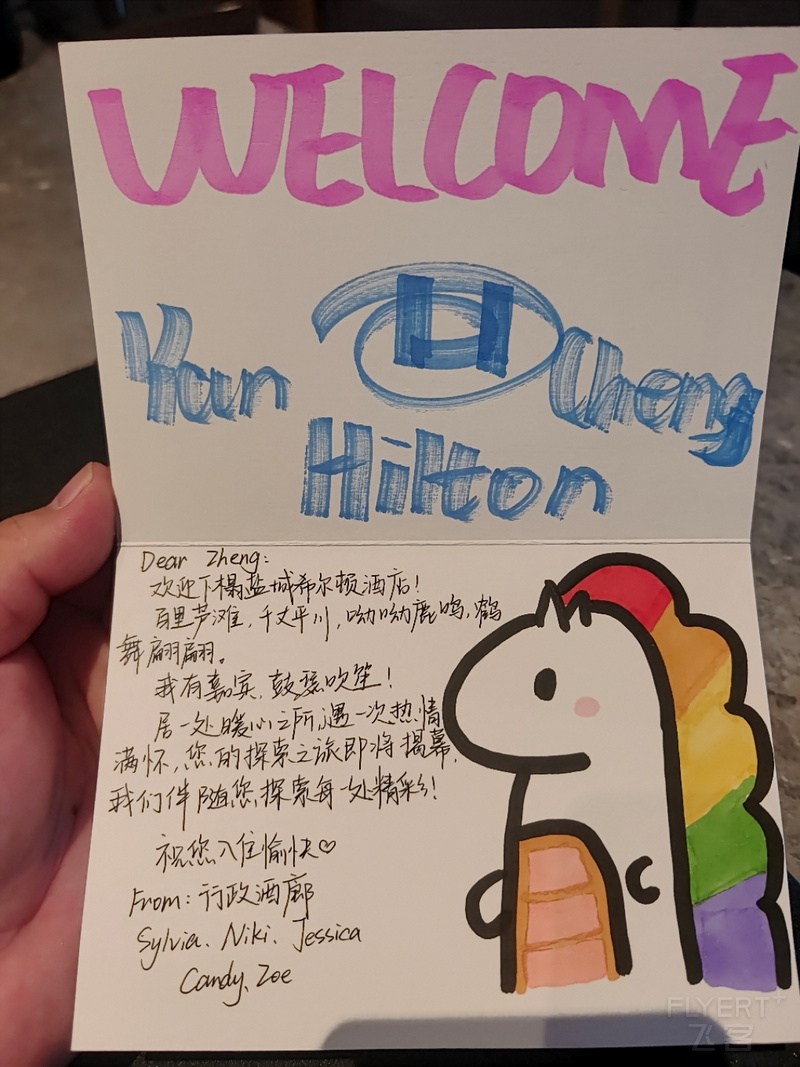 WELCOME
Yan Cheng
H
Hilton
Dear Zheng:
欢迎下榻盐城希尔顿酒店!
百里芦滩,千丈平川,呦呦鹿鸣,鹤
舞翩翩。
我有嘉宾,鼓瑟吹笙!
居一处暖心之所,遇一次热情
满怀,您的探索之旅即将揭幕,
我们伴随您探索每一处精彩!
祝您入住愉快♡
From: 行政酒廊
Sylvia、Niki、Jessica
Candy、Zoe
FLYERT+
飞客